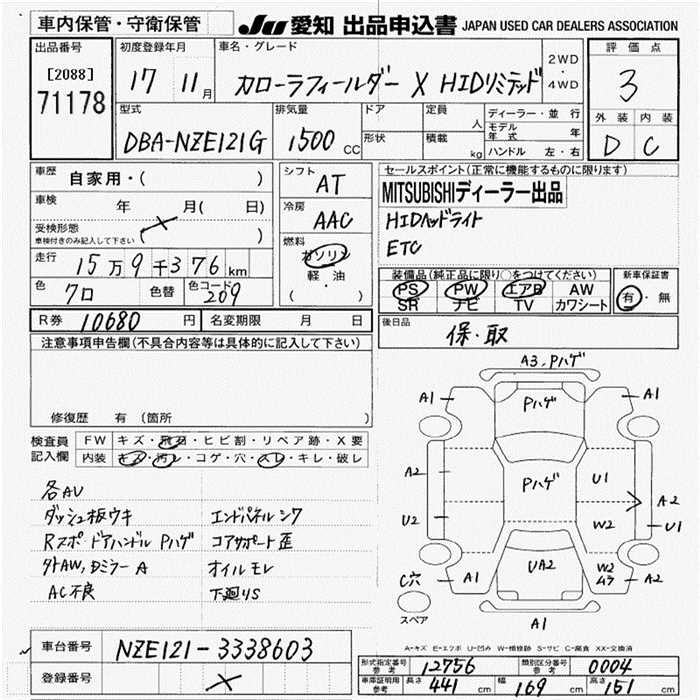 車内保管・守衛保管
JU 愛知 出品申込書 JAPAN USED CAR DEALERS ASSOCIATION
出品番号
[2088]
71178
初度登録年月
17 11月
車名・グレード
カローラフィールダー X HIDリミテッド
2WD
・
4WD
評価点
3
外装 内装
D C
型式
DBA-NZE121G
排気量
1500 CC
ドア
形状
定員 人
積載 kg
ディーラー・並行
モデル年式 年
ハンドル 左・右
車歴
自家用・( )
車検 年 月( 日)
受検形態
車検付きのみ記入して下さい ( )
走行 15万9千376km
色 クロ 色替 色コード 209
シフト
AT
冷房
AAC
燃料
ガソリン
軽・油
( ・ )
セールスポイント(正常に機能するものに限ります)
MITSUBISHIディーラー出品
HIDヘッドライト
ETC
装備品(純正品に限り○をつけてください)
PS PW エアB AW
SR ナビ TV カワシート
新車保証書
有・無
R券 10680 円 名変期限 月 日
後日品
保・取
注意事項申告欄(不具合内容等は具体的に記入して下さい)
修復歴 有 (箇所
検査員
記入欄
FW キズ・飛石・ヒビ割・リペア跡・X要
内装 キズ・汚レ・コゲ・穴・スレ・キレ・破レ
各AU
ダッシュ板ウキ
Rスポ・ドアハンドル Pハゲ
外AW,Dミラー A
AC不良
エンドパネルシワ
コアサポート歪
オイルモレ
下廻りS
A3.Pハゲ
Pハゲ
A1
A1
A2
Pハゲ
U1
A2
U2
W2
U1
A1
UA2
W2
A2
C穴
スペア
A1
A-キズ E-エクボ U-凹み W-補修跡 S-サビ C-腐食 XX-交換済
車台番号 NZE121-3338603
登録番号
形式指定番号
参考
12756
類別区分番号
参考
0004
車庫証明用
参考
長さ 441 cm 幅 169 cm 高さ 151 cm